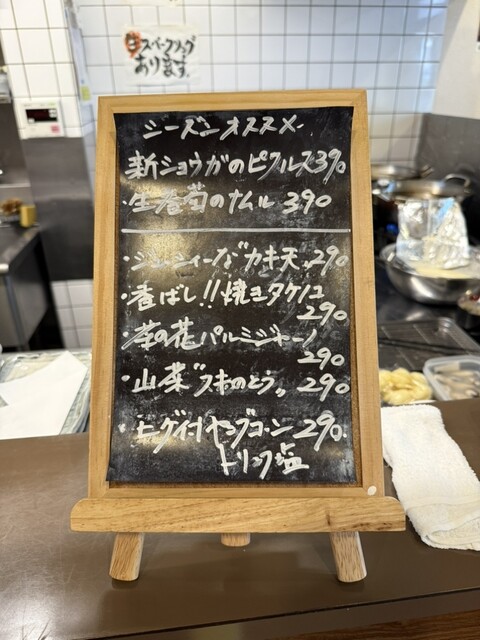 スパークリング
あります。
シーズンオススメ
新ショウガのピクルス390
・生春菊のナムル 390
・ジューシィーなカキ天 290
・香ばし!!焼きタケノコ
290
・菜の花パルミジャーノ
290
・山菜"フキのとう" 290
・ヒゲ付ヤングコーン 290
トリュフ塩